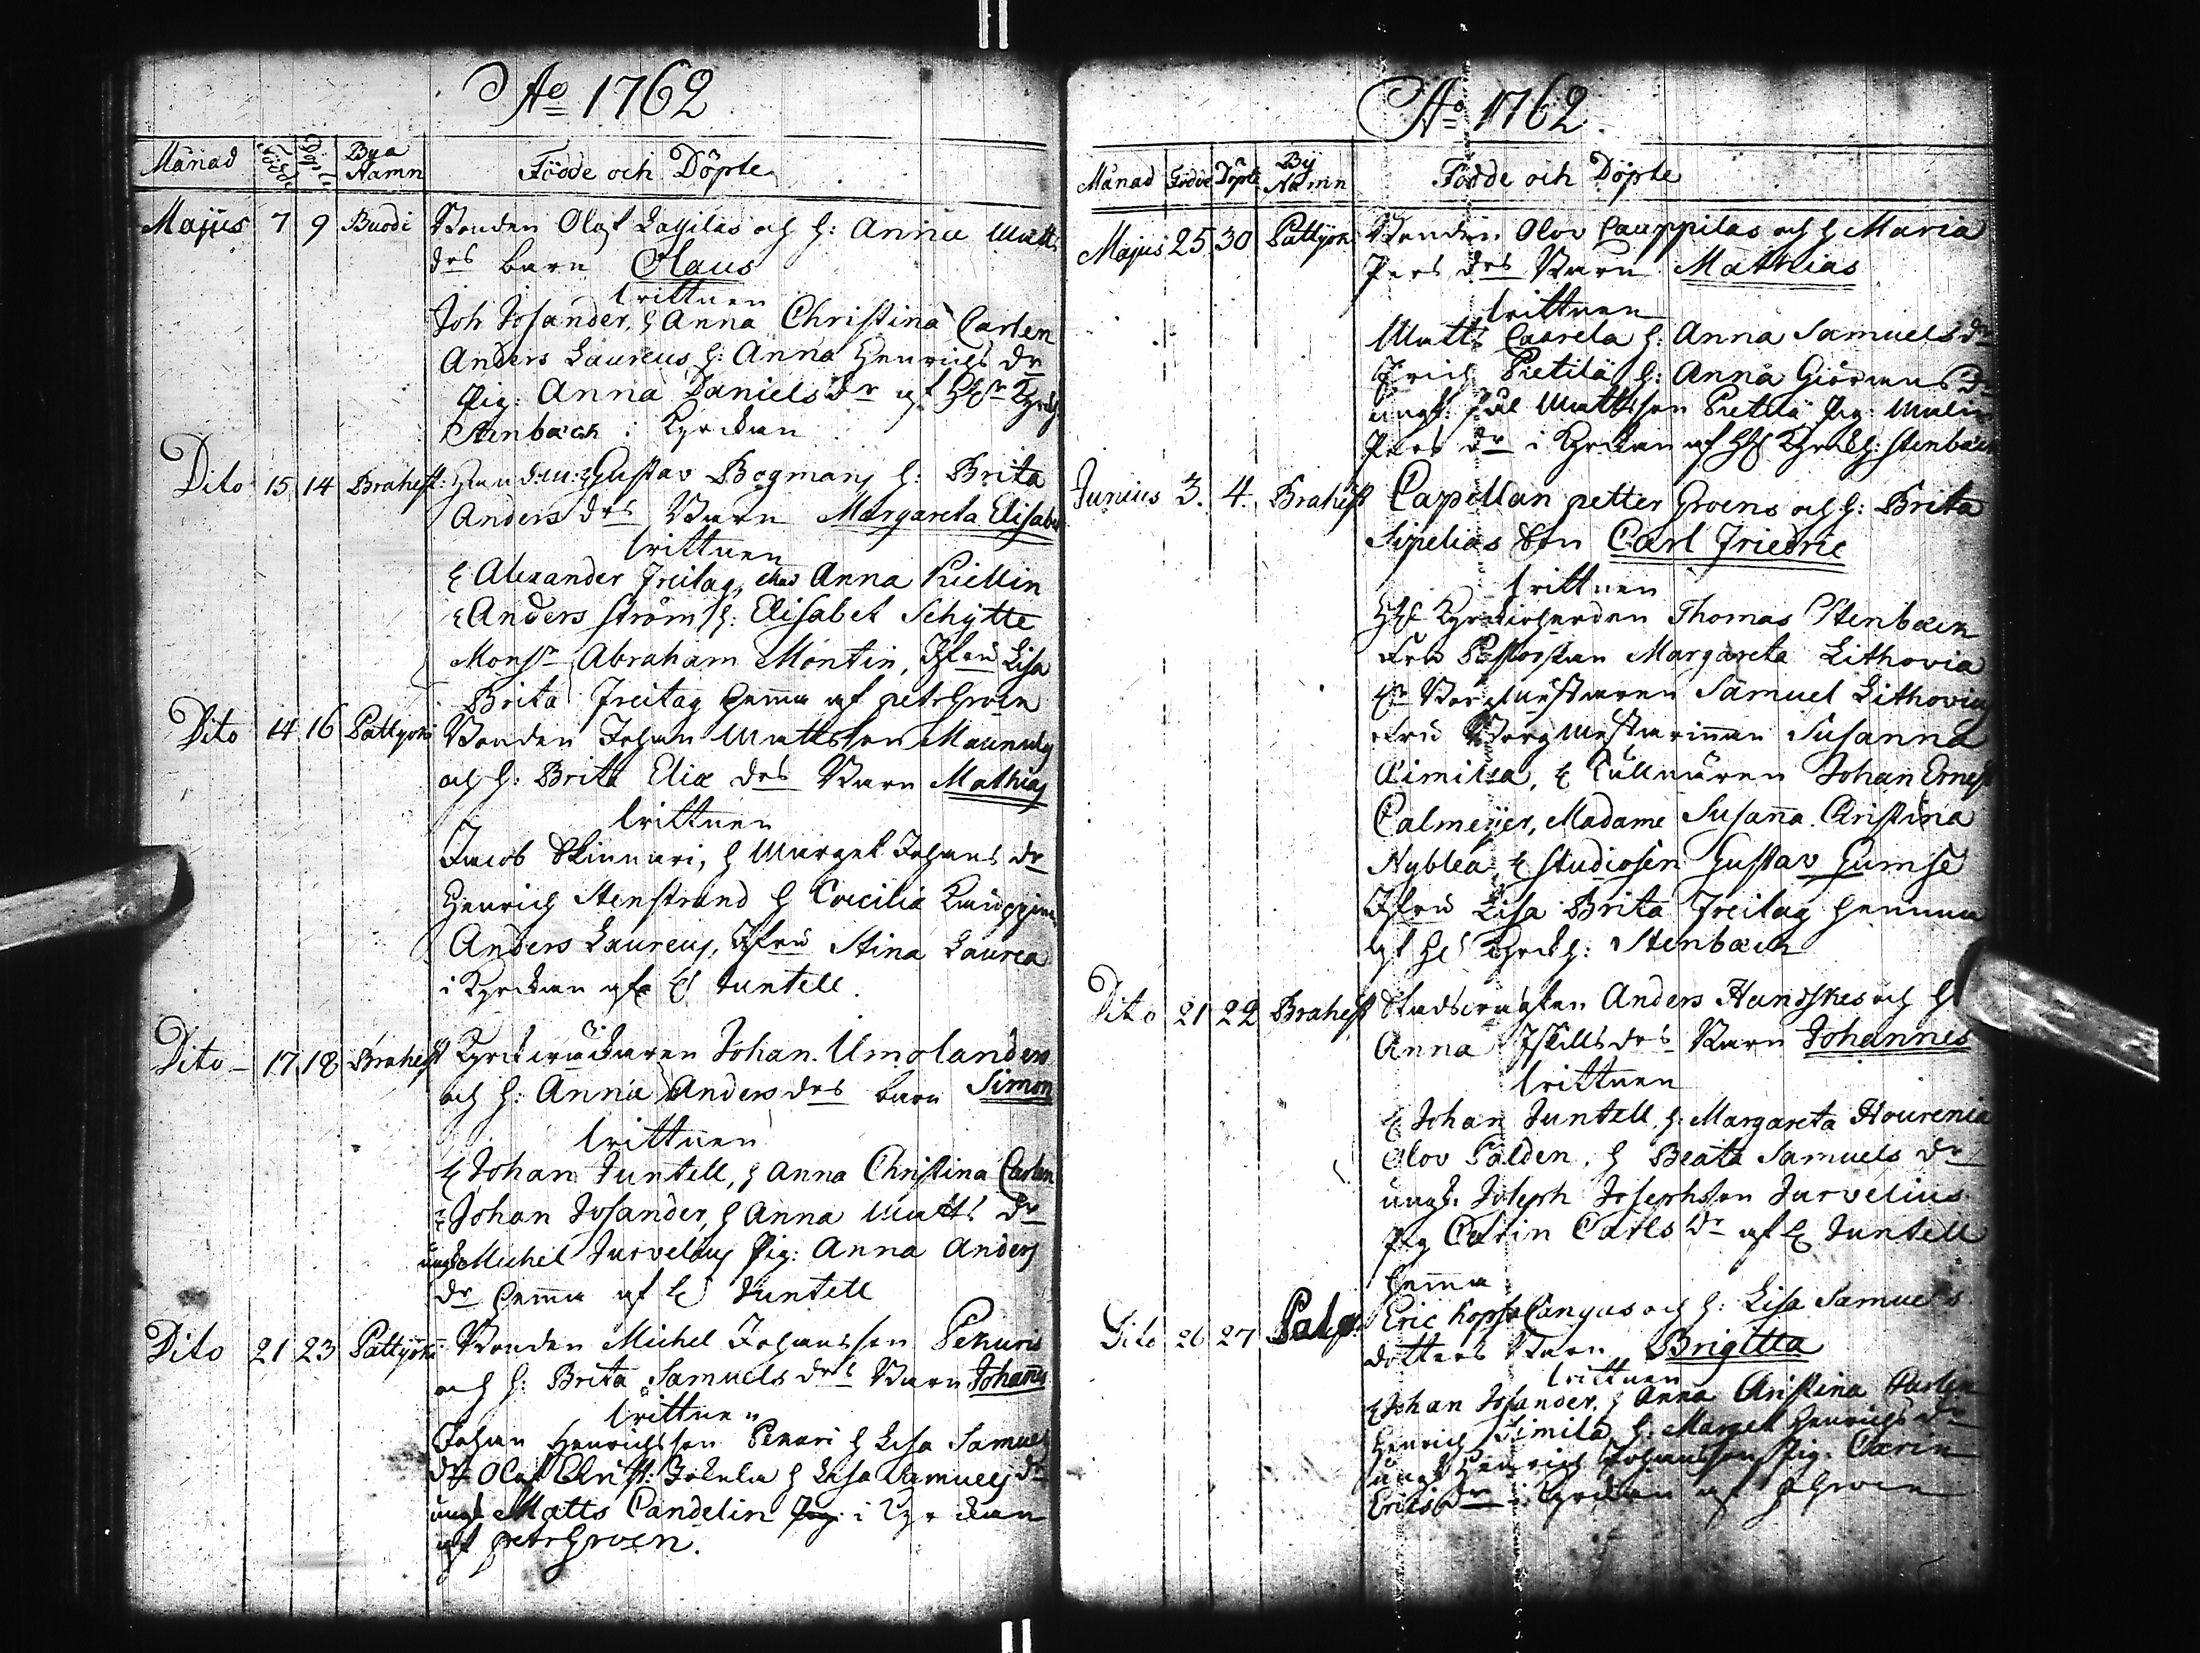 Ao 1762
Månad Födde Döpte Bya Namn Födde och Döpte
Majus 7 9 Buodi Bonden Olof Lassilas och h: Anna Matts
drs barn Olaus
wittnen
Joh Josander, h Anna Christina Carlen
Anders Laureus h: Anna Henrichs dr
Pig: Anna Daniels dr af H Hr Kyrkh
Stenbæck i Kyrckan
Dito 15 14 Brahest: Gustav Bogmans h: Brita
Anders drs Barn Margareta Elisabet
wittnen
H Alexander Freitag, Mad Anna Kiellin
H Anders Ström h: Elisabet Schytte
Monsr Abraham Montin, Jfru Lisa
Brita Freitag hema af petr Groen
Dito 14 16 Pattijoki Bonden Johan Mattsson Maunus
och h: Brita Eliæ drs Barn Mathias
wittnen
Jacob Skinnari, h Marget Johans dr
Henrich Stenstrand h Coecilia
Anders Laureus, Jfru Stina Laurea
i Kyrckan af H Juntell.
Dito 17 18 Brahest Kyrckwäcktaren Johan Umolanders
och h: Anna Anders drs barn Simon
wittnen
H Johan Juntell, h Anna Christina Carlen
H Johan Josander, h Anna Matts dr
ungk Michel Jurvelius Pig: Anna Anders
dr hema af H Juntell
Dito 21 23 Pattijoki Bonden Michel Johansson Pekuris
och h: Brita Samuels drs Barn Johannes
wittnen
Johan Henrichsson Pekuri h Lisa Samuels
dr Olof Christ: Jokela h Lisa Samuels dr
ungk Matts Candelin Pig: i Kyrckan
af petr Groen.
Ao 1762
Månad Födde Döpte By Namn Födde och Döpte
Majus 25 30 Pattijok Bonden Olov Lauppilas och h Maria
Pers drs Barn Mathias
wittnen
Matts h: Anna Samuels dr
Erich Pietilä h: Anna Giörans dr
ungk: Pål Mattsson Pietilä Pig: Malin
Pers dr i Kyrckan af H H Kyrckh: Stenbæck
Junius 3. 4. Brahest Capellan petter Groens och h: Brita
Sipelias Son Carl Friedric
wittnen
H H Kyrckioherden Thomas Stenbæck
Fru Pastorskan Margareta Lithovia
Hr Borgmästaren Samuel Lithovius
Fru Borgmästarinnan Susanna
Aimilæa, H Tullnären Johan Ernest
Calmeijer, Madame Susana Christina
Nyblea, H Studiosen Gustav Gumse
Jfru Lisa Brita Freitag hemma
af H H Kyrckh: Stenbæck
Dito 21 22 Brahest Stadswachten Anders Handskes och h
Anna drs Barn Johannes
wittnen
H Johan Juntell, h: Margareta Hourenia
Olov Palden, h Beata Samuels dr
ungk: Joseph Josephsson Jurvelius
Pig Carin Carls dr af H Juntell
hema
Dito 26 27 Palo Eric Kopsa Cangas och h: Lisa Samuels
dotters Barn Brigitta
wittnen
H Johan Josander, h Anna Christina Carlen
Henrich Simila h: Marget Henrichs dr
ungk Henrich Johansson Pig: Carin
Erics dr i Kyrckan af P Groen